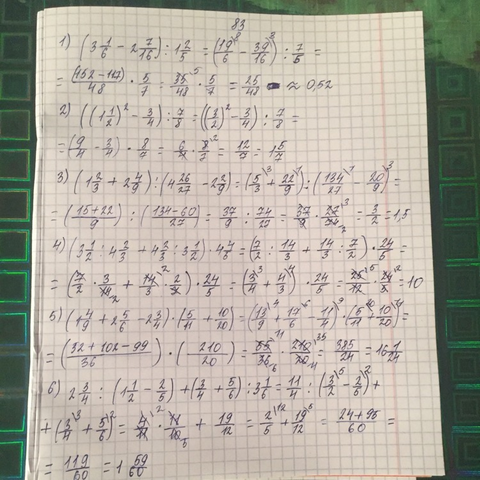 83
1) (3 1/6 - 2 7/16) : 1 2/5 = (19/6 - 39/16) : 7/5 =
= (152-117)/48 · 5/7 = 35/48 · 5/7 = 25/48 ≈ 0,52
2) ((1 1/2)² - 3/4) : 7/8 = ((3/2)² - 3/4) : 7/8 =
= (9/4 - 3/4) · 8/7 = 6/4 · 8/7 = 12/7 = 1 5/7
3) (1 2/3 + 2 4/9) : (4 26/27 - 2 2/9) = (5/3 + 22/9) : (134/27 - 20/9) =
= (15+22/9) : (134-60/27) = 37/9 : 74/27 = 37/9 · 27/74 = 3/2 = 1,5
4) (3 1/2 : 4 2/3 + 4 2/3 : 3 1/2) · 4 4/5 = (7/2 : 14/3 + 14/3 : 7/2) · 24/5 =
= (7/2 · 3/14 + 14/3 · 2/7) · 24/5 = (3/4 + 4/3) · 24/5 = 25/12 · 24/5 = 10
5) (1 4/9 + 2 5/6 - 2 3/4) · (5/11 + 10/20) = (13/9 + 17/6 - 11/4) · (5/11 + 10/20) =
= (32+102-99/36) · (210/20) = 55/36 · 210/20 = 385/24 = 16 1/24
6) 2 3/4 : (1 1/2 - 2/5) + (3/4 + 5/6) : 3 1/6 = 11/4 : (3/2 - 2/5) +
+ (3/4 + 5/6) = 4/11 · 11/10 + 19/12 = 2/5 + 19/12 = 24+95/60 =
= 119/60 = 1 59/60